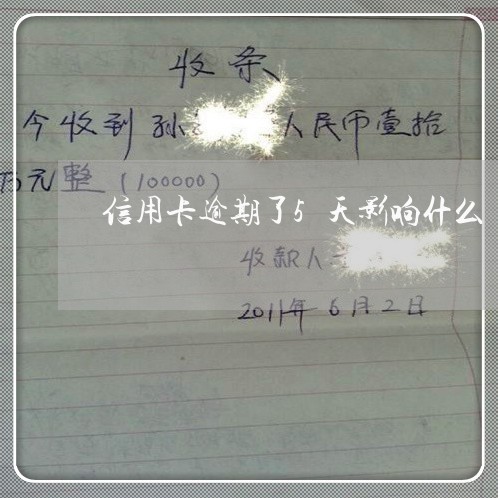 收条
今收到孙 人民币壹拾
万元整(100000)
信用卡逾期了5天影响什么
收款人
2011年6月2日